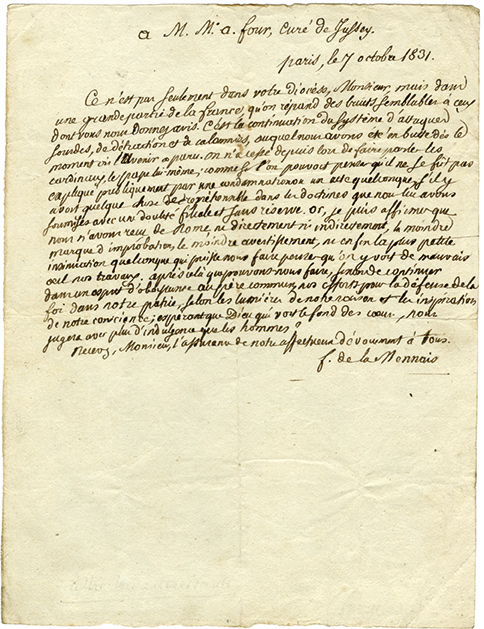 a M. Mr. a. four, curé de Jussey.
paris, le 7 octobre 1831.
Ce n'est pas seulement dans votre diocèse, Monsieur, mais dans
une grande partie de la france, qu'on répand des bruits semblables à ceux
dont vous nous donnez avis. C'est la continuation du système d'attaques
sourdes, de détraction et de calomnies, auquel nous avons été en bute dès le
moment où l'avenir a paru. on n'a cessé depuis lors de faire parler les
cardinaux, le pape lui-même; comme si l'on pouvoit penser qu'il ne se fût pas
expliqué publiquement par une condamnation ou un acte quelconque, s'il y
avoit quelque chose de repréhensible dans les doctines que nous lui avons
soumises avec une docilité filiale et sans réserve. or, je puis affirmer que
nous n'avons reçu de Rome, ni directement ni indirectement, la moindre
marque d'improbation, le moindre avertissement, ni enfin la plus petite
insinuation quelconque qui puisse nous faire penser qu'on y voit de mauvais
œil nos travaux. après cela que pouvons-nous faire, sinon de continuer
dans un esprit d'obéissance au père commun, nos efforts pour la défense de la
foi dans notre patrie, selon les lumières de notre raison et les inspirations
de notre conscience; espérant que Dieu qui voit le fond des cœurs, nous
jugera avec plus d'indulgence que les hommes?
recevez, Monsieur, l'assurance de notre affectueux dévoument à tous.
f. de la Mennais